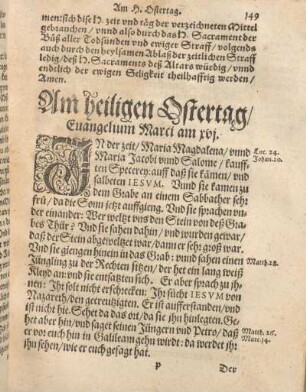 Am H. Ostertag. 149
men: sich dise H. zeit vnd tåg der verzeichneten Mittel
gebrauchen / vnnd also durch das H. Sacrament der
Båß aller Todsünden vnd ewiger Straff / volgends
auch durch den heylsamen Ablaß der zeitlichen Straff
ledig / deß H. Sacraments deß Altars würdig / vnnd
endtlich der ewigen Seligkeit theilhafftig werden /
Amen.
Am heiligen Ostertag /
Euangelium Marci am xvj.
IN der zeit / Maria Magdalena / vnnd
Maria Jacobi vnnd Salome / kauff-
ten Specerey: auff daß sie kåmen / vnd
salbeten IESVM. Vnnd sie kamen zu
dem Grabe an einem Sabbather sehr
frü / da die Sonn jetzt auffgieng. Vnd sie sprachen vn-
der einander: Wer weltzt vns den Stein von deß Gra-
bes Thür? Vnd sie sahen dahin / vnd wurden gewar /
daß der Stein abgeweltzet war / dann er sehr groß war.
Vnd sie giengen hinein in das Grab: vnnd sahen einen
Jüngling zu der Rechten sitzen / der het ein lang weiß
Kleyd an: vnd sie entsatzten sich. Er aber sprach zu jh-
nen: Ihr solt nicht erschrecken: Ihr sůcht IESVM von
Nazareth / den gecreutzigten. Er ist aufferstanden / vnd
ist nicht hie. Sehet da das ort / da sie jhn hinlegten. Ge-
het aber hin / vnd saget seinen Jüngern vnd Petro / daß
er vor euch hin in Galileam gehn wirdt: da werdet jhr
jhn sehen / wie er euch gesagt hat.
Luc. 24.
Johan. 20.
Matth. 28.
Matth. 26.
Marc. 14.
P Der